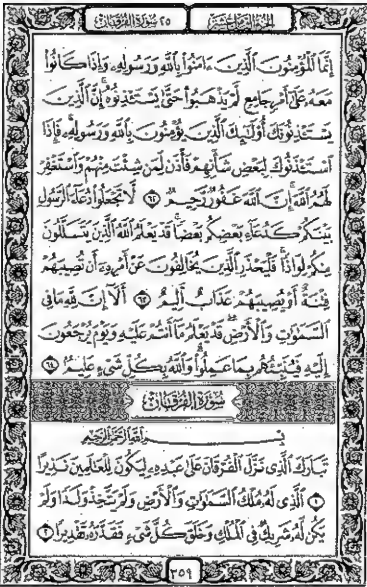 الجزء الثامن عشر
٢٥ سورة الفرقان
إِنَّمَا الْمُؤْمِنُونَ الَّذِينَ ءَامَنُوا بِاللَّهِ وَرَسُولِهِ وَإِذَا كَانُوا
مَعَهُ عَلَىٰ أَمْرٍ جَامِعٍ لَّمْ يَذْهَبُوا حَتَّىٰ يَسْتَـْٔذِنُوهُ إِنَّ الَّذِينَ
يَسْتَـْٔذِنُونَكَ أُولَٰئِكَ الَّذِينَ يُؤْمِنُونَ بِاللَّهِ وَرَسُولِهِ فَإِذَا
اسْتَـْٔذَنُوكَ لِبَعْضِ شَأْنِهِمْ فَأْذَن لِّمَن شِئْتَ مِنْهُمْ وَاسْتَغْفِرْ
لَهُمُ اللَّهَ إِنَّ اللَّهَ غَفُورٌ رَّحِيمٌ ٦٢ لَّا تَجْعَلُوا دُعَاءَ الرَّسُولِ
بَيْنَكُمْ كَدُعَاءِ بَعْضِكُم بَعْضًا قَدْ يَعْلَمُ اللَّهُ الَّذِينَ يَتَسَلَّلُونَ
مِنكُمْ لِوَاذًا فَلْيَحْذَرِ الَّذِينَ يُخَالِفُونَ عَنْ أَمْرِهِ أَن تُصِيبَهُمْ
فِتْنَةٌ أَوْ يُصِيبَهُمْ عَذَابٌ أَلِيمٌ ٦٣ أَلَا إِنَّ لِلَّهِ مَا فِي
السَّمَٰوَٰتِ وَالْأَرْضِ قَدْ يَعْلَمُ مَا أَنتُمْ عَلَيْهِ وَيَوْمَ يُرْجَعُونَ
إِلَيْهِ فَيُنَبِّئُهُم بِمَا عَمِلُوا وَاللَّهُ بِكُلِّ شَيْءٍ عَلِيمٌ ٦٤
سُورَةُ الْفُرْقَانِ
بِسْمِ اللَّهِ الرَّحْمَٰنِ الرَّحِيمِ
تَبَارَكَ الَّذِي نَزَّلَ الْفُرْقَانَ عَلَىٰ عَبْدِهِ لِيَكُونَ لِلْعَالَمِينَ نَذِيرًا
١ الَّذِي لَهُ مُلْكُ السَّمَٰوَٰتِ وَالْأَرْضِ وَلَمْ يَتَّخِذْ وَلَدًا وَلَمْ
يَكُن لَّهُ شَرِيكٌ فِي الْمُلْكِ وَخَلَقَ كُلَّ شَيْءٍ فَقَدَّرَهُ تَقْدِيرًا ٢
٣٥٩